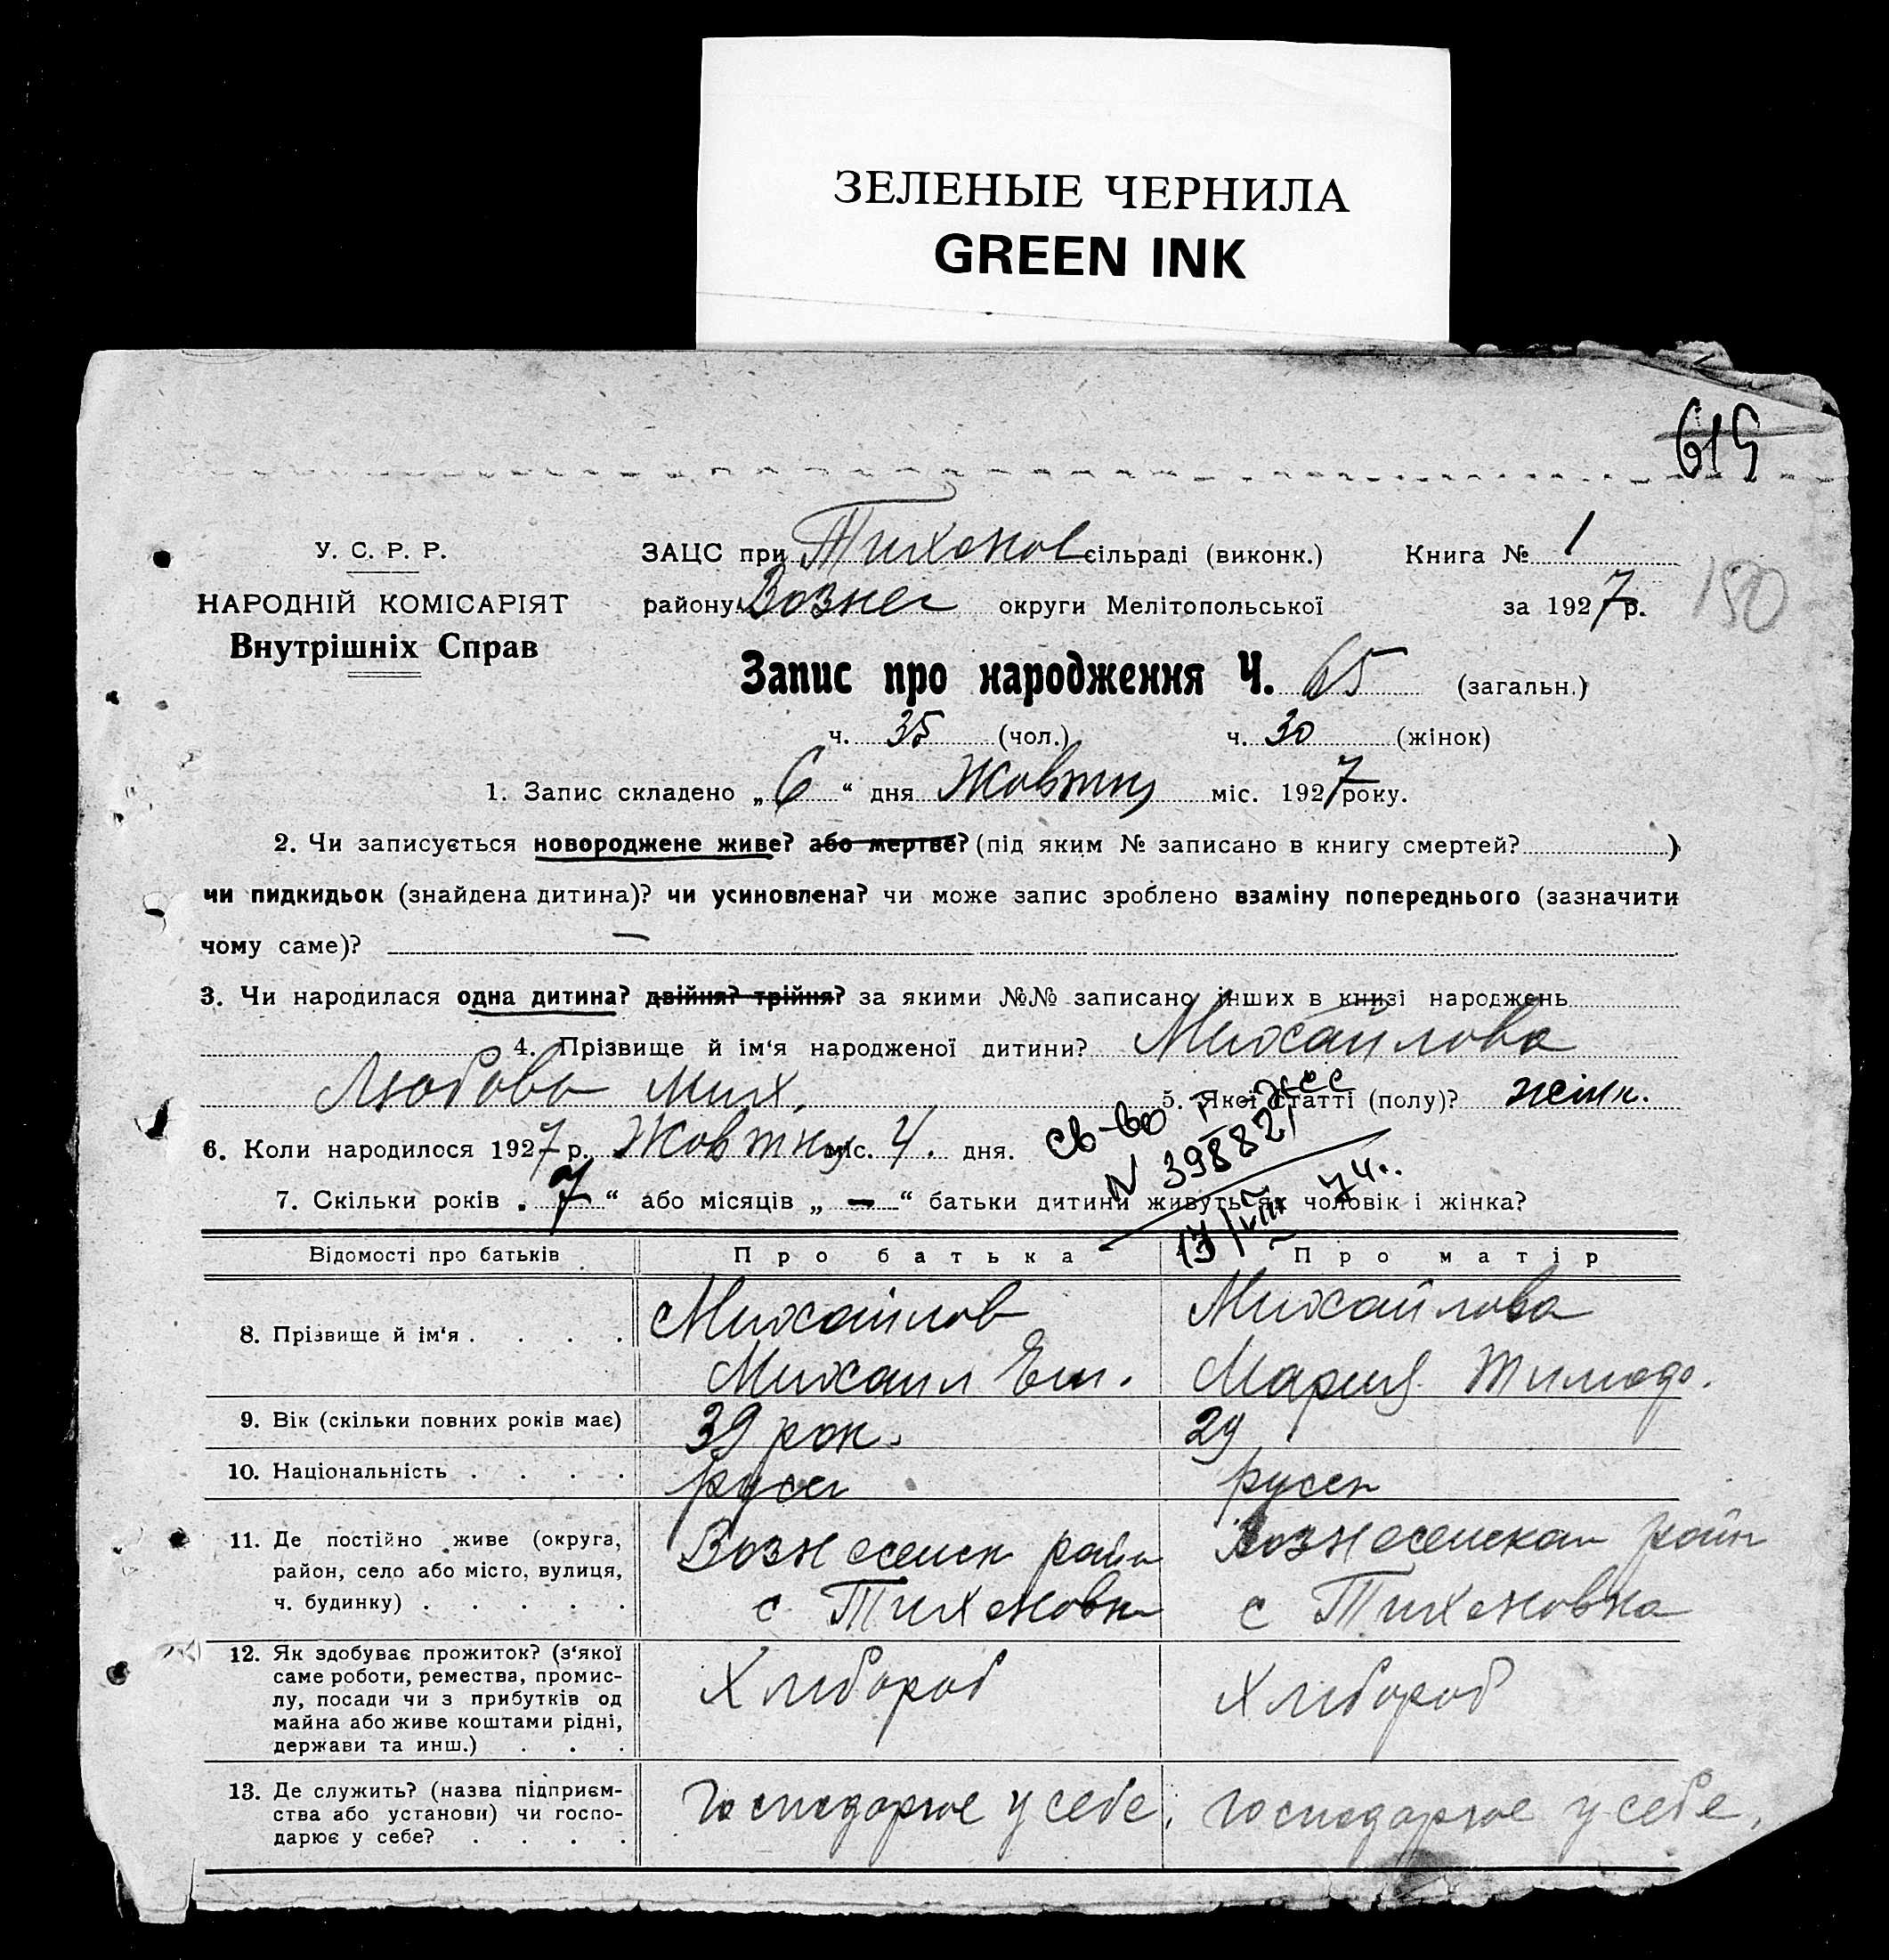 ЗЕЛЕНЫЕ ЧЕРНИЛА
GREEN INK
619
У. С. Р. Р.
НАРОДНІЙ КОМІСАРІЯТ
Внутрішніх Справ
ЗАЦС при Тихонов сільраді (виконк.) Книга № 1
району Вознес округи Мелітопольської за 1927 р.
150
Запис про народження Ч. 65 (загальн.)
ч. 35 (чол.) ч. 30 (жінок)
1. Запис складено „6“ дня Жовтня міс. 1927 року.
2. Чи записується новороджене живе? або мертве? (під яким № записано в книгу смертей? )
чи пидкидьок (знайдена дитина)? чи усиновлена? чи може запис зроблено взаміну попереднього (зазначити
чому саме)? —
3. Чи народилася одна дитина? двійня? трійня? за якими №№ записано інших в книзі народжень
4. Прізвище й ім'я народженої дитини? Михайлова
Любовь Мих. 5. Якої статті (полу)? жінк.
6. Коли народилося 1927 р. Жовтня міс. 4. дня.
св-во
N 398821
7. Скільки років „7“ або місяців „—“ батьки дитини живуть як чоловік і жінка?
17/VIII 74г.
Відомості про батьків Про батька Про матір
8. Прізвище й ім'я . . . . Михайлов Михайлова
Михаил Ем. Мария Тимоф.
9. Вік (скільки повних років має) 39 рок. 29
10. Національність . . . . русск русск
11. Де постійно живе (округа, район, село або місто, вулиця, ч. будинку) . . . . .
Вознесенск район
с Тихоновка
Вознесенская район
с Тихоновка
12. Як здобуває прожиток? (з'якої саме роботи, ремества, промис-
лу, посади чи з прибутків од
майна або живе коштами рідні,
держави та инш.) . . .
Хлибороб Хлибороб
13. Де служить? (назва підприєм-
ства або установи) чи госпо-
дарює у себе? . . . .
Господарює у себе. Господарює у себе.